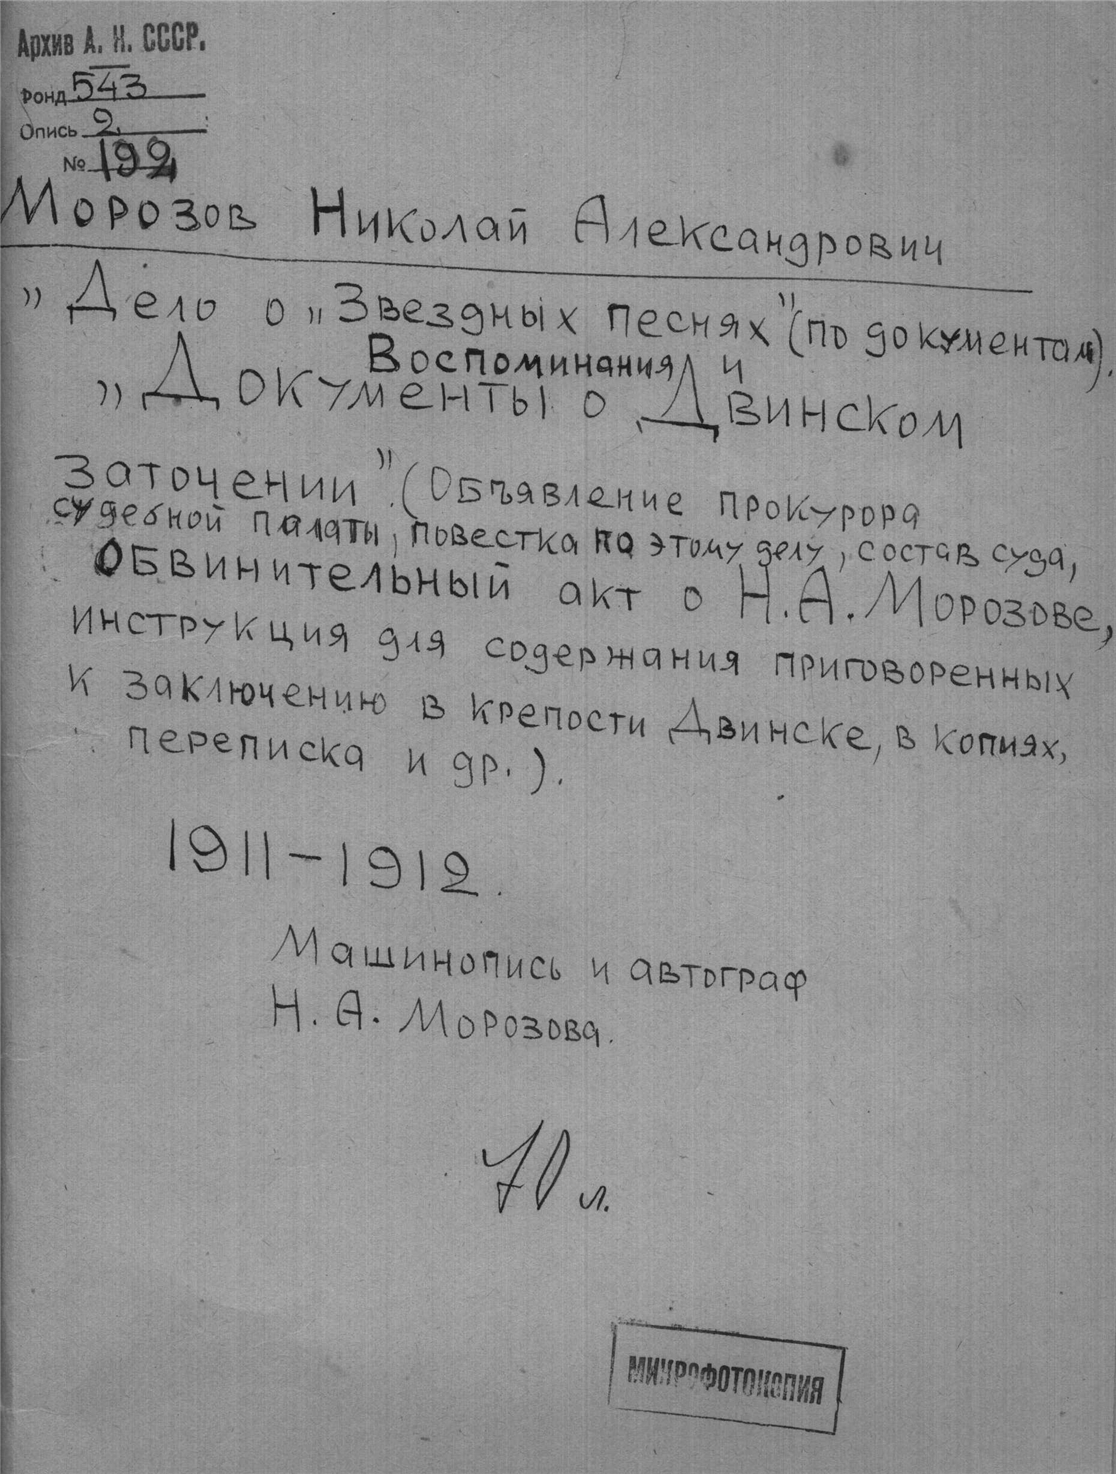 Архив А. Н. СССР.
Фонд 543
Опись 2
№ 192
Морозов Николай Александрович
„Дело о „Звездных песнях" (по документам).
Воспоминания и
„Документы о Двинском
заточении" (Объявление прокурора
судебной палаты, повестка по этому делу, состав суда,
Обвинительный акт о Н.А. Морозове,
инструкция для содержания приговоренных
к заключению в крепости Двинске, в копиях,
переписка и др.).
1911-1912.
Машинопись и автограф
Н. А. Морозова.
70 л.
МИКРОФОТОКОПИЯ